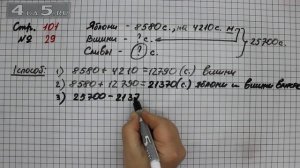 4 A 5 .RU
Стр. 101
№ 29
Яблони – 8580 с., на 4210 с. м
Вишни – ? с.
Сливы – ? с.
25700 с.
I способ:
1) 8580 + 4210 = 12790 (с.) вишни
2) 8580 + 12790 = 21370 (с.) яблони и вишни вместе
3) 25700 – 2137